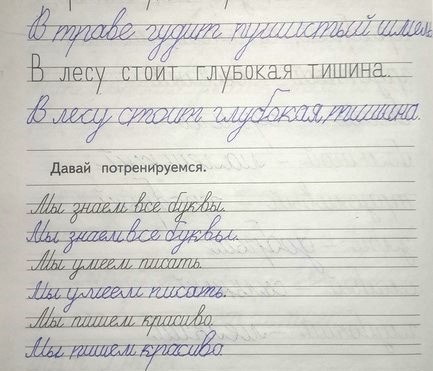 В траве гудит пушистый шмель
В лесу стоит глубокая тишина.
В лесу стоит глубокая тишина.
Давай потренируемся.
Мы знаем все буквы.
Мы знаем все буквы.
Мы умеем писать.
Мы умеем писать.
Мы пишем красиво.
Мы пишем красиво